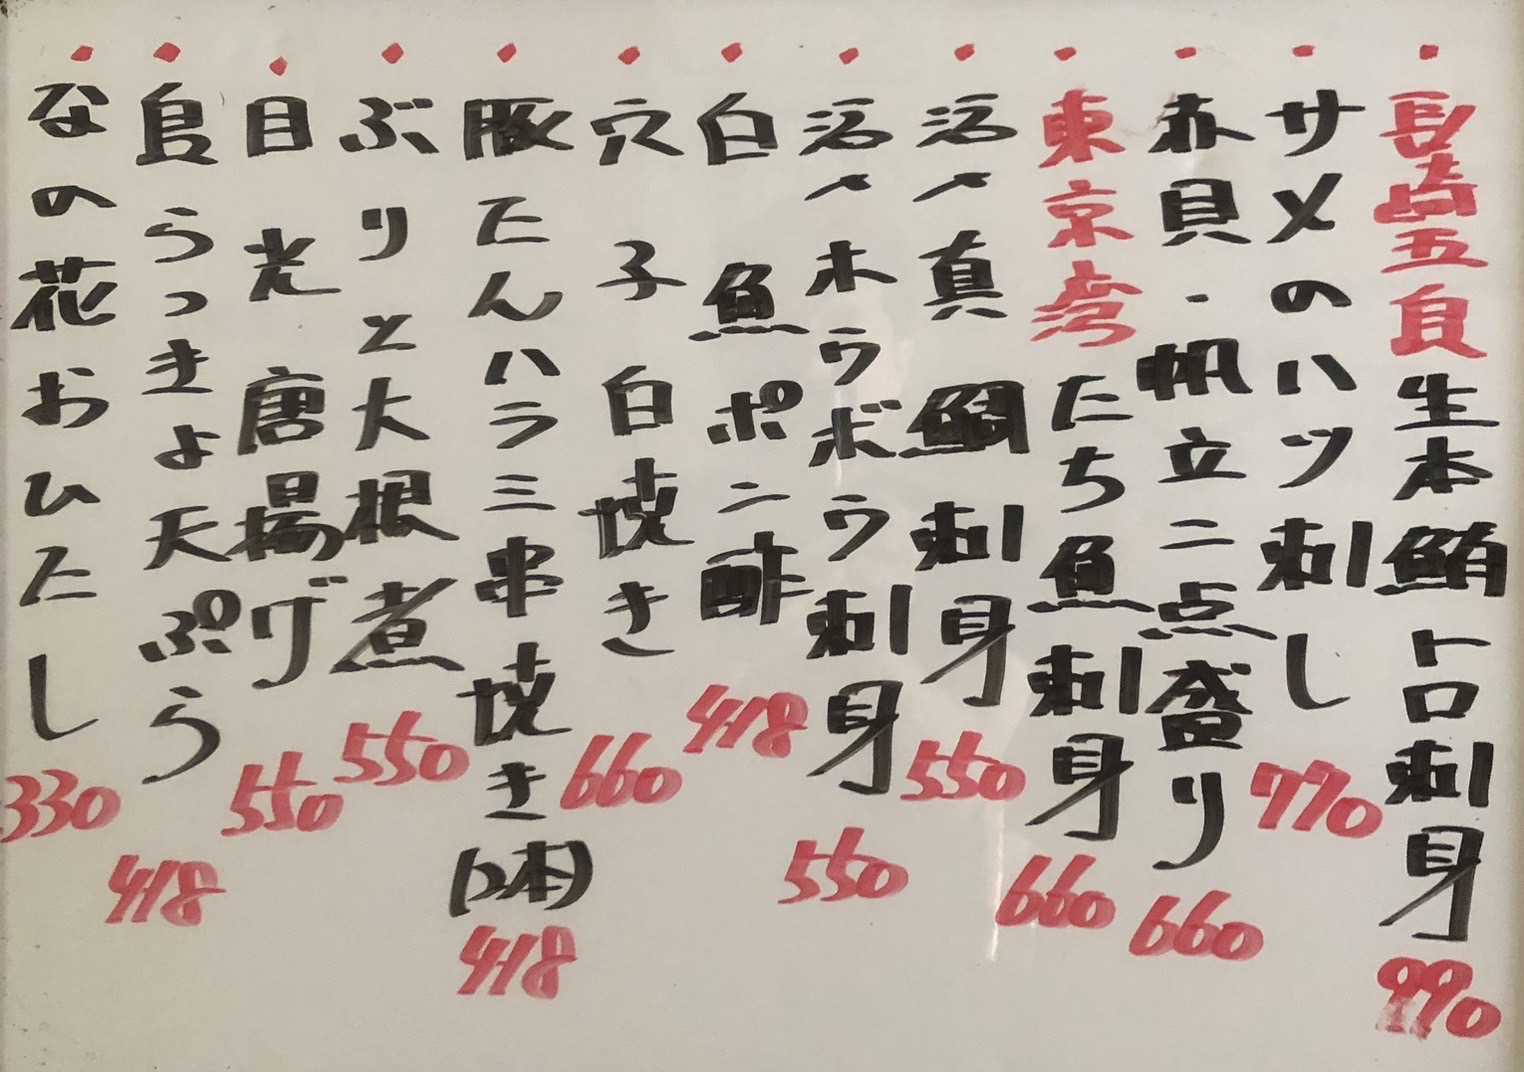 ・長崎五島生本鮪トロ刺身 990
・サメのハツ刺し 770
・赤貝・帆立二点盛り 660
・東京湾たち魚刺身 660
・活〆真鯛刺身 550
・活〆ホウボウ刺身 550
・白魚ポン酢 418
・穴子白焼き 660
・豚たんハラミ串焼き(2本) 418
・ぶりと大根煮 550
・目光唐揚げ 550
・島らっきょ天ぷら 418
・なの花おひたし 330